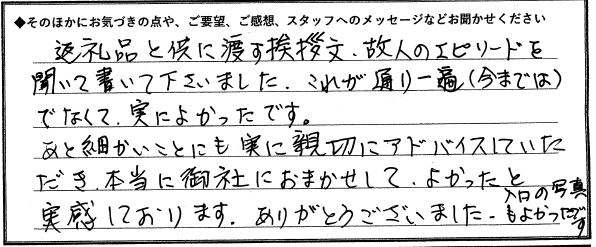 ◆そのほかにお気づきの点や、ご要望、ご感想、スタッフへのメッセージなどお聞かせください
返礼品と供に渡す挨拶文、故人のエピソードを
聞いて書いて下さいました。これが通り一遍(今までは)
でなくて、実によかったです。
あと細かいことにも実に親切にアドバイスしていた
だき、本当に御社におまかせして、よかったと
実感しております。ありがとうございました。
入口の写真
もよかったです